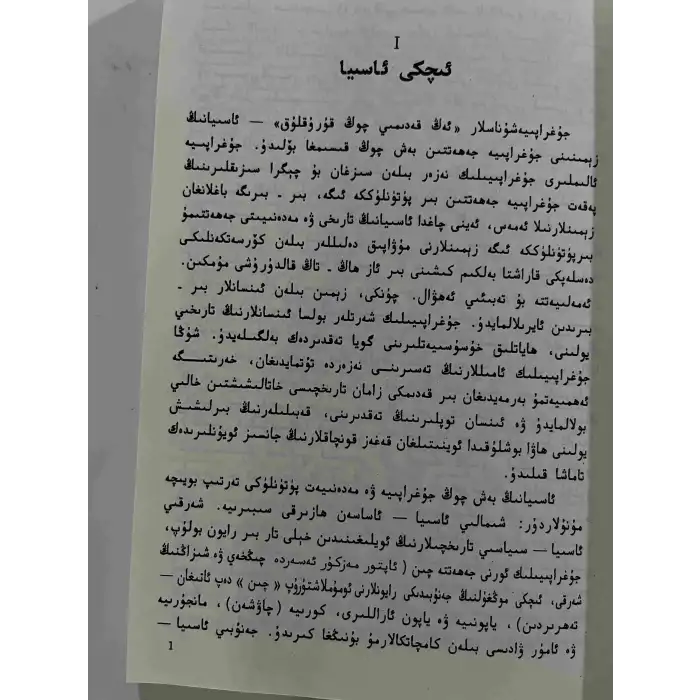 I
ئىچكى ئاسىيا
جۇغراپىيەشۇناسلار «ئەڭ قەدىمىي چوڭ قۇرۇقلۇق» — ئاسىيانىڭ
زېمىنىنى جۇغراپىيە جەھەتتىن بەش چوڭ قىسىمغا بۆلىدۇ. جۇغراپىيە
ئالىملىرى جۇغراپىيىلىك نەزەر بىلەن سىزغان بۇ چېگرا سىزىقلىرىنىڭ
پەقەت جۇغراپىيە جەھەتتىن بىر پۈتۈنلۈككە ئىگە، بىر ـ بىرىگە باغلانغان
زېمىنلارنىلا ئەمەس، ئەينى چاغدا ئاسىيانىڭ تارىخى ۋە مەدەنىيىتى جەھەتتىمۇ
بىرپۈتۈنلۈككە ئىگە زېمىنلارنى مۇۋاپىق دەلىللەر بىلەن كۆرسەتكەنلىكى
دەسلەپكى قاراشتا بەلكىم كىشىنى بىر ئاز ھاڭ ـ تاڭ قالدۇرۇشى مۇمكىن.
ئەمەلىيەتتە بۇ تەبىئىي ئەھۋال. چۈنكى، زېمىن بىلەن ئىنسانلار بىر ـ
بىرىدىن ئايرىلالمايدۇ. جۇغراپىيىلىك شەرتلەر بولسا ئىنسانلارنىڭ تارىخىي
يولىنى، ھاياتلىق خۇسۇسىيەتلىرىنى گويا تەقدىردەك بەلگىلەيدۇ. شۇڭا
جۇغراپىيىلىك ئامىللارنىڭ تەسىرىنى نەزەردە تۇتمايدىغان، خەرىتىگە
ئەھمىيەتمۇ بەرمەيدىغان بىر قەدىمكى زامان تارىخچىسى خاتالىشىشتىن خالىي
بولالمايدۇ ۋە ئىنسان توپلىرىنىڭ تەقدىرىنى، قەبىلىلەرنىڭ بىرلىشىش
يولىنى ھاۋا بوشلۇقىدا ئوينىتىلغان قەغەز قونچاقلارنىڭ جانسىز ئويۇنلىرىدەك
تاماشا قىلىدۇ.
ئاسىيانىڭ بەش چوڭ جۇغراپىيە ۋە مەدەنىيەت پۈتۈنلۈكى تەرتىپ بويىچە
مۇنۇلاردۇر: شىمالىي ئاسىيا — ئاساسەن ھازىرقى سىبىرىيە. شەرقىي
ئاسىيا — سىياسىي تارىخچىلارنىڭ ئويلىغىنىدىن خېلى تار بىر رايون بولۇپ،
جۇغراپىيىلىك ئورنى جەھەتتە چىن ( ئاپتور مەزكۇر ئەسەردە چىڭخەي ۋە شىزاڭنىڭ
شەرقى، ئىچكى موڭغۇلنىڭ جەنۇبىدىكى رايونلارنى ئومۇملاشتۇرۇپ « چىن » دەپ ئاتىغان —
تەھرىردىن) ، ياپونىيە ۋە ياپون ئاراللىرى، كورىيە (چاۋشەن) ، مانجۇرىيە
ۋە ئامۇر ۋادىسى بىلەن كامچاتكالارمۇ بۇنىڭغا كىرىدۇ. جەنۇبىي ئاسىيا —
1